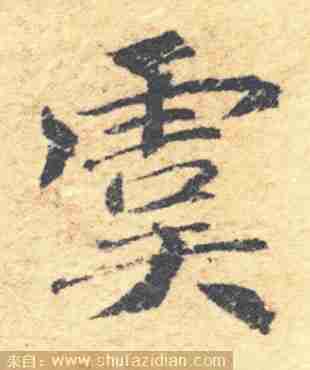 虞
来自：www.shufazidian.com